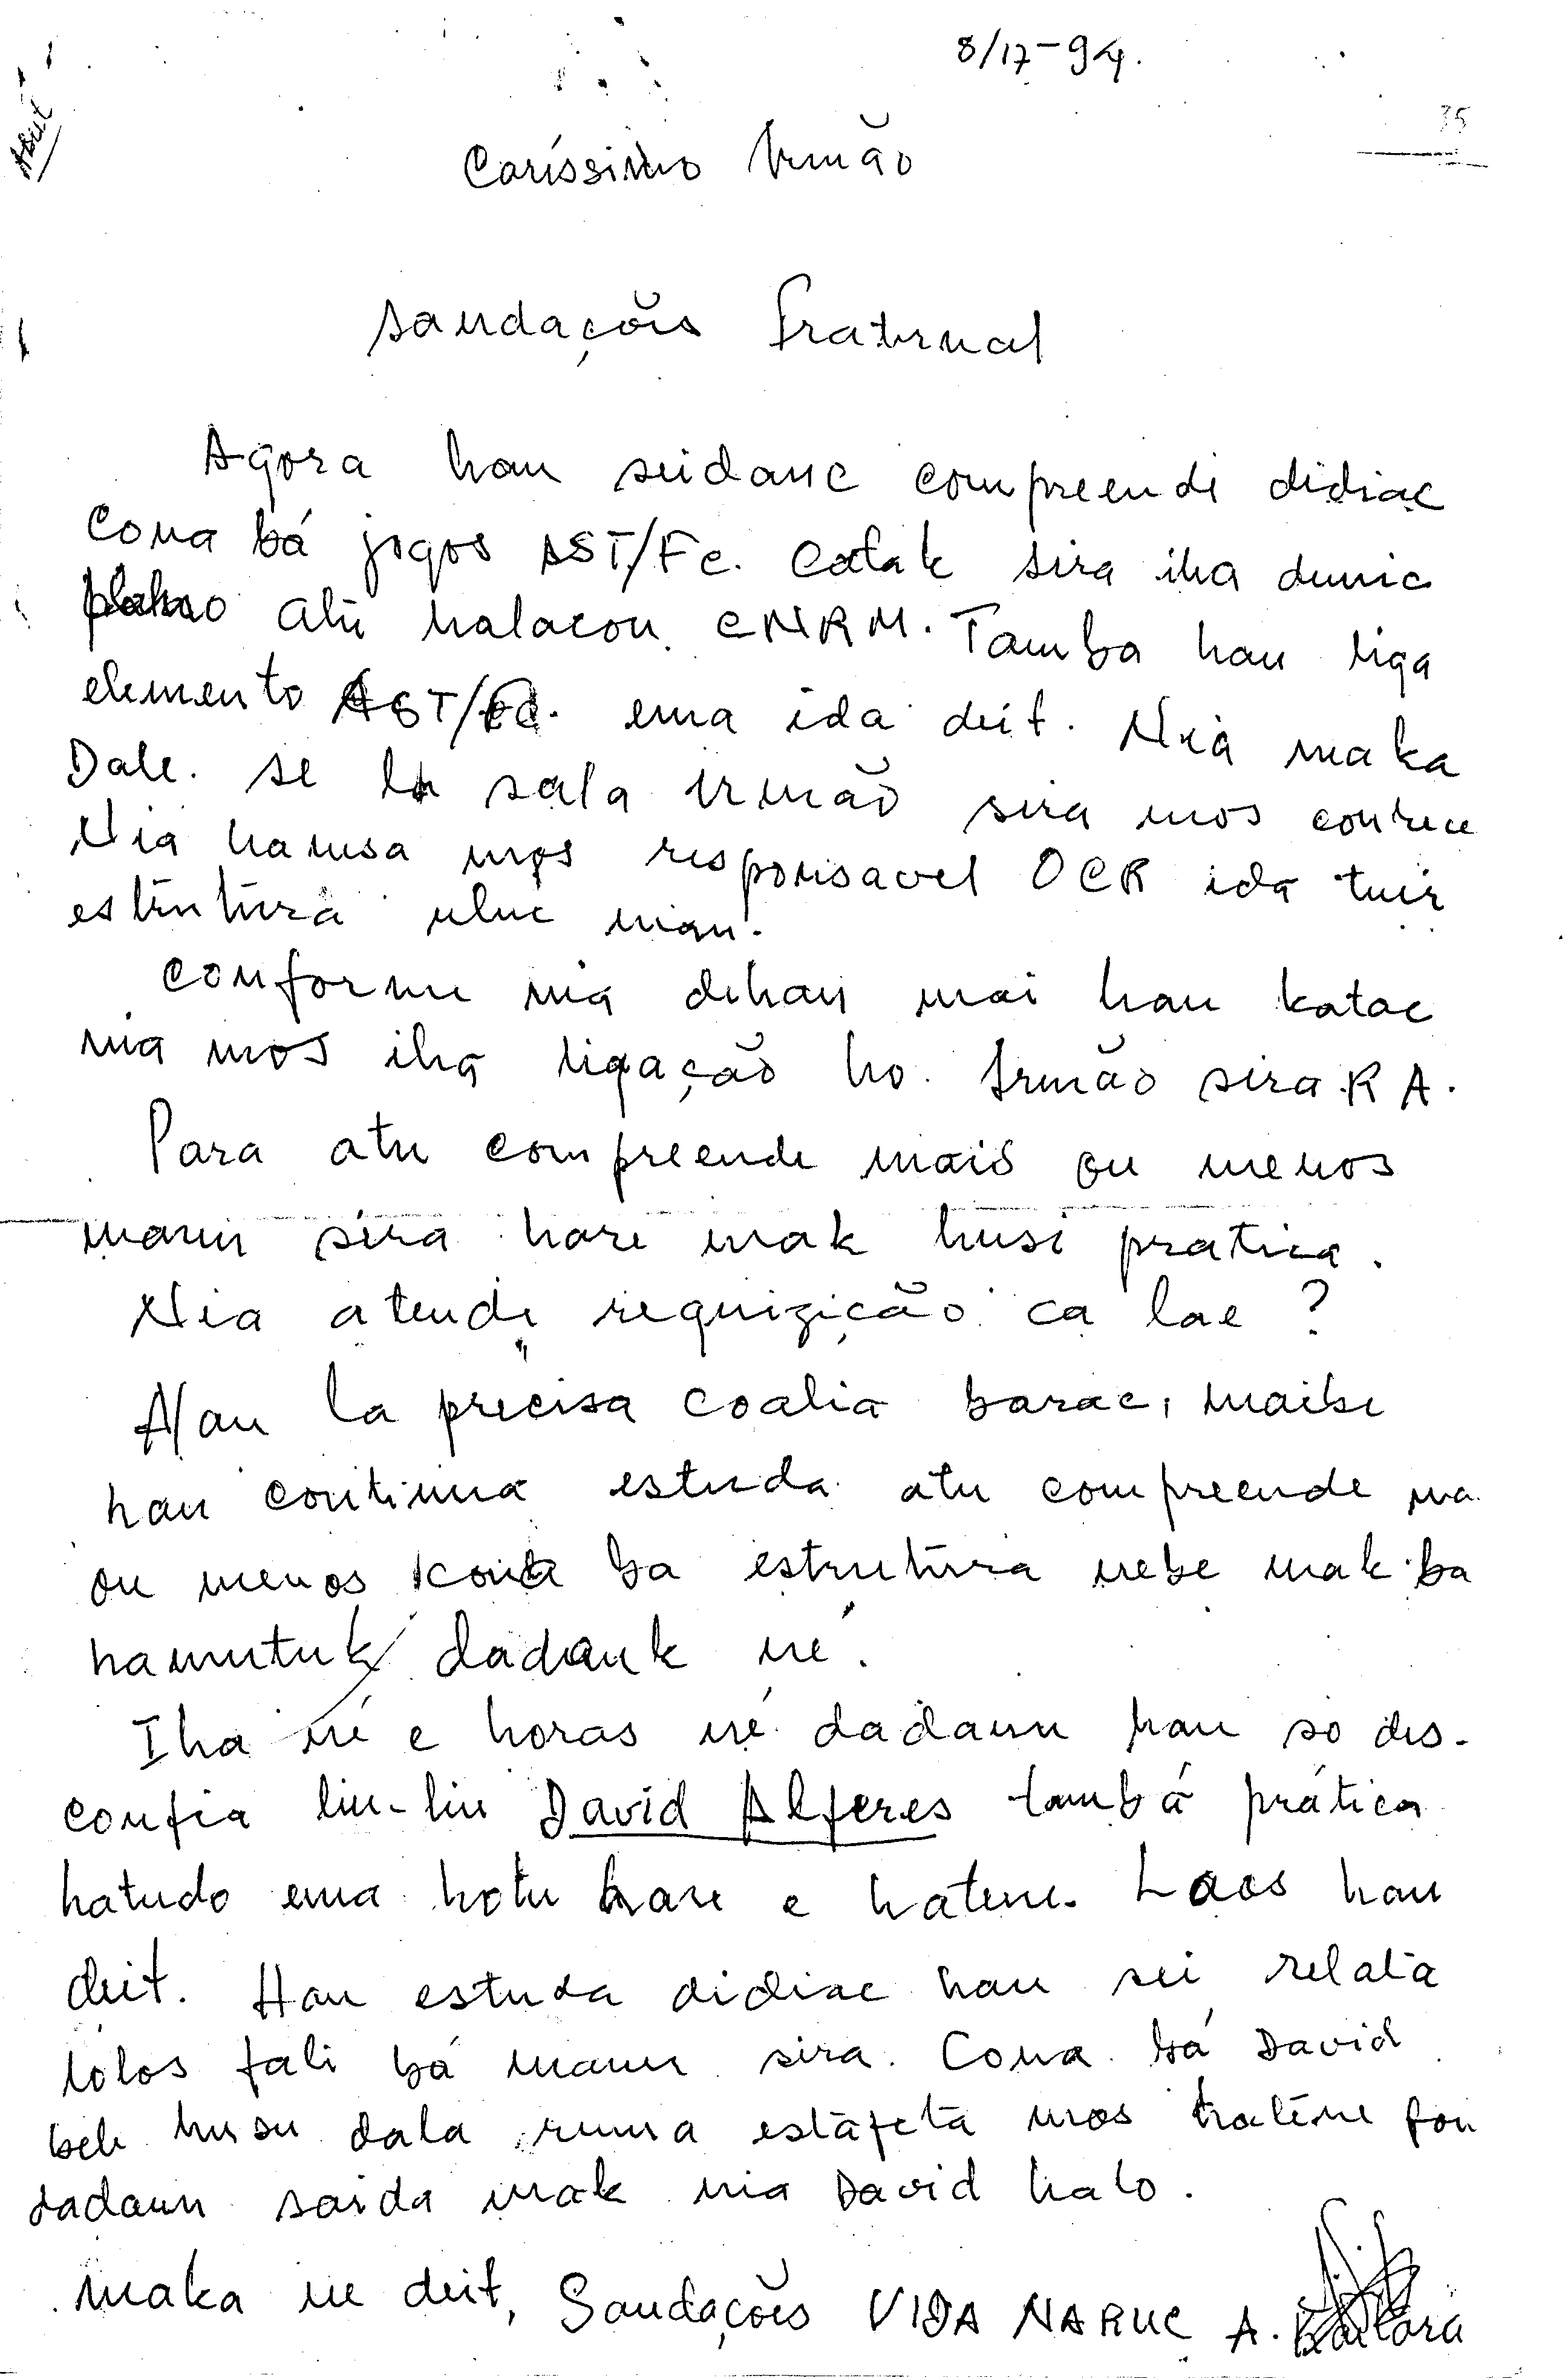 8/17-94.
35
Caríssimo Irmão
Saudações fraternal
Agora hau seidauc compreende didiac
Cona bá jogos AST/Fc. Catak sira iha dunic
plano atu halacon CNRM. Tamba hau liga
elemento AST/Fc. ema ida deit. Nia maka
Dale. se la sala irmão sira mos conhece
Nia hanesa mos responsavel OCR ida tuir
estrutura uluc nian.
Conforme nia dehan mai hau katac
nia mos iha ligação ho. Irmão sira R A.
Para atu compreende mais ou menos
maun sira hare mak husi pratica.
Nia atende requizição ca lae ?
Hau la precisa coalia barac, maibe
hau continua estuda atu compreende ma
ou menos kona ba estrutura nebe mak ba
hamutuk dadauk né.
Iha né e horas né dadaun hau so des-
confia liu-liu David Alferes tambá prática
hatudo ema hotu hare e hatene. Laos hau
deit. Hau estuda didiac hau sei relata
lolos fali bá maun sira. Cona bá David
bele husu dala ruma estafeta mos hatene fou
dadaun saida mak nia David halo.
Maka ne deit, Saudações VIDA NARUC A.